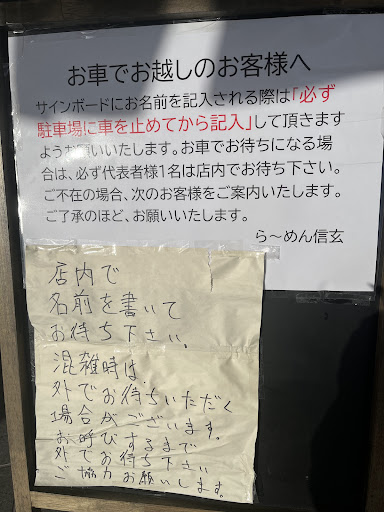 お車でお越しのお客様へ
サインボードにお名前を記入される際は「必ず
駐車場に車を止めてから記入」して頂きます
ようお願いいたします。お車でお待ちになる場
合は、必ず代表者様1名は店内でお待ち下さい。
ご不在の場合、次のお客様をご案内いたします。
ご了承のほど、お願いいたします。
ら〜めん信玄
店内で
名前を書いて
お待ち下さい。
混雑時は、
外でお待ちいただく
場合がございます。
お呼びするまで
外でお待ち下さい
ご協力お願いします。